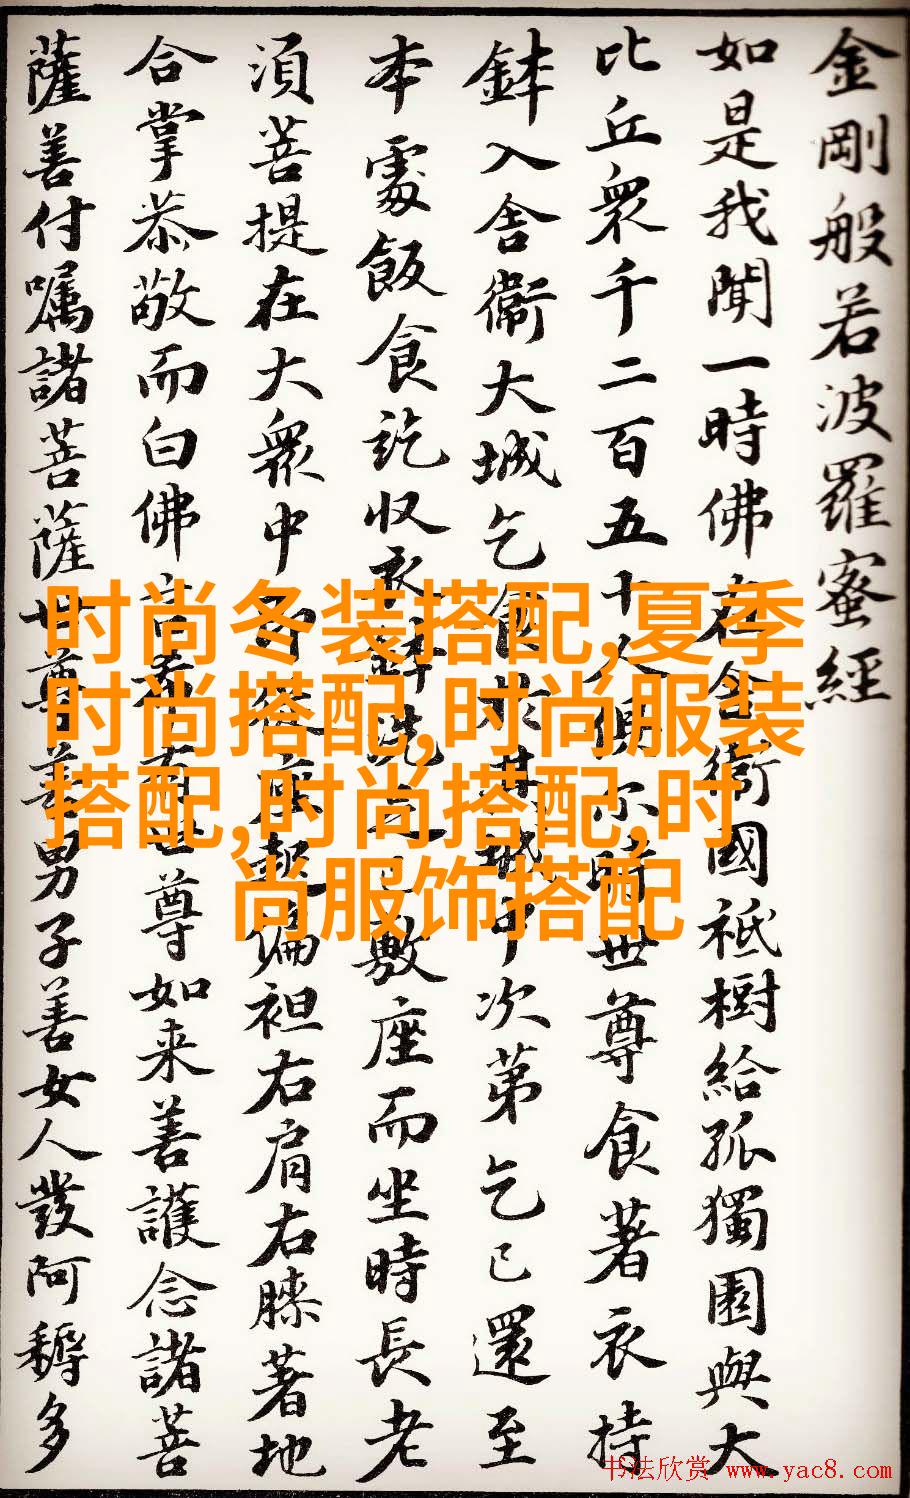 金剛般若波羅蜜經
如是我聞一時佛在舍衛國祇樹給孤獨園與大
比丘衆千二百五十人俱尔時世尊食著衣持
鉢入舍衛大城乞食於其城中次第乞已還至
本處飯食訖收衣鉢洗足已敷座而坐時長老
湏菩提在大衆中即從座起偏袒右肩右膝著地
合掌恭敬而白佛言希有世尊如来善護念諸菩
薩善付嘱諸菩薩世尊善男子善女人發阿耨多
时尚冬装搭配,夏季
时尚搭配,时尚服装
搭配,时尚搭配,时
尚服饰搭配
书法欣赏 www.yac8.com